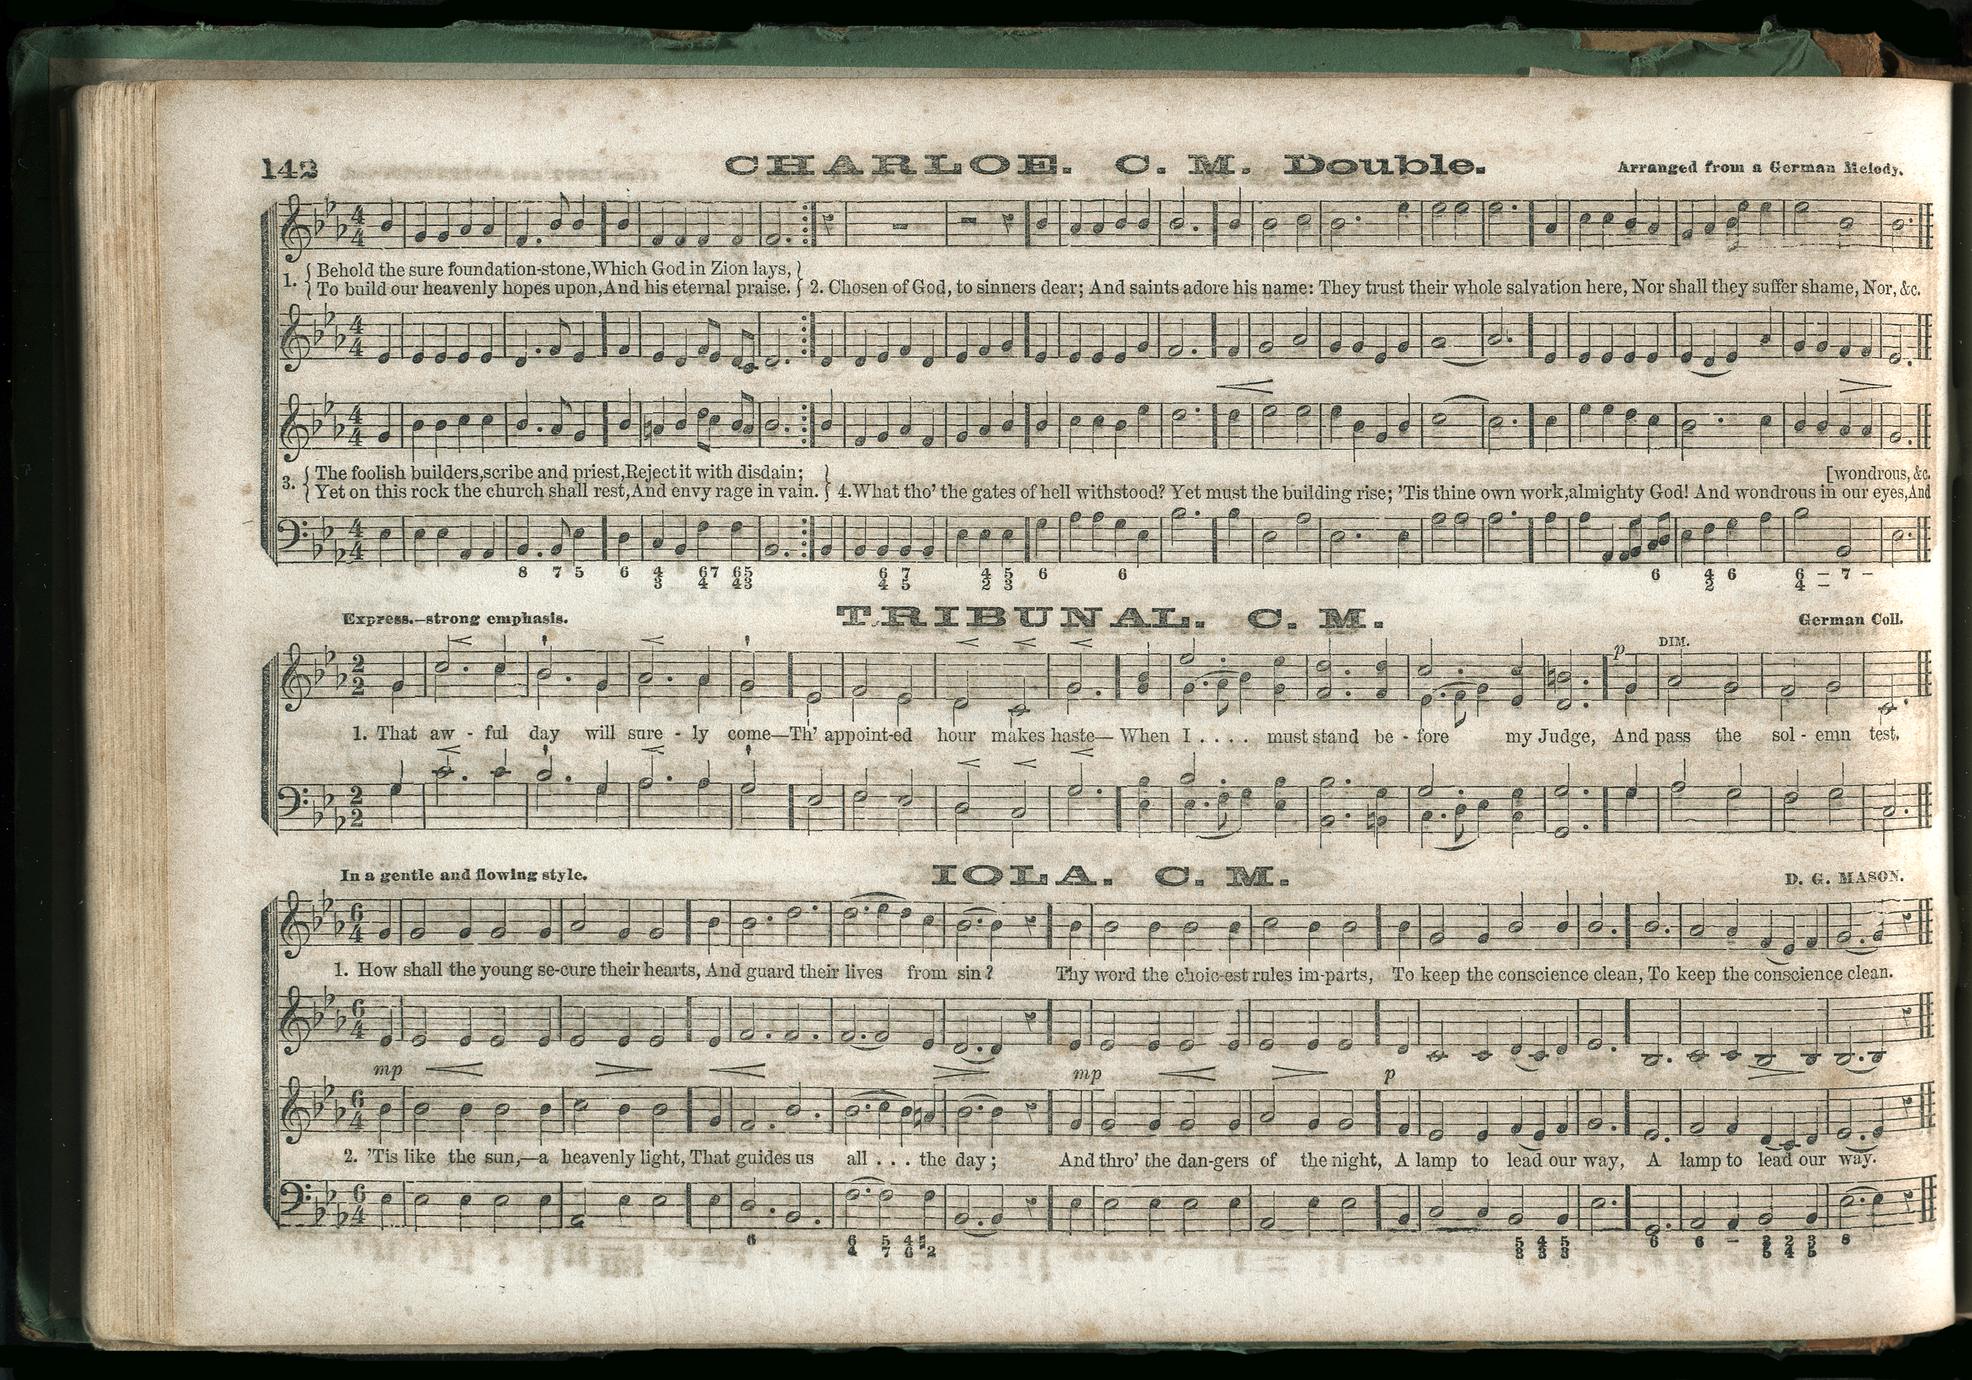 142
CHARLOE. C. M. Double.
Arranged from a German Melody.
1. { Behold the sure foundation-stone, Which God in Zion lays, }
{ To build our heavenly hopes upon, And his eternal praise. } 2. Chosen of God, to sinners dear; And saints adore his name: They trust their whole salvation here, Nor shall they suffer shame, Nor, &c.
3. { The foolish builders, scribe and priest, Reject it with disdain; }
[wondrous, &c.
{ Yet on this rock the church shall rest, And envy rage in vain. } 4. What tho' the gates of hell withstood? Yet must the building rise; 'Tis thine own work, almighty God! And wondrous in our eyes, And
8 7 5 6 4 3 6 7 4 6 5 4 3 6 4 7 5 4 2 5 3 6 6 6 4 2 6 6 4 – – 7 –
Express.—strong emphasis.
TRIBUNAL. C. M.
German Coll.
p DIM.
1. That aw - ful day will sure - ly come—Th' appoint-ed hour makes haste— When I . . . . must stand be - fore my Judge, And pass the sol - emn test.
In a gentle and flowing style.
IOLA. C. M.
D. G. MASON.
1. How shall the young se-cure their hearts, And guard their lives from sin? Thy word the choic-est rules im-parts, To keep the conscience clean, To keep the conscience clean.
mp mp p
2. 'Tis like the sun,—a heavenly light, That guides us all . . . the day; And thro' the dan-gers of the night, A lamp to lead our way, A lamp to lead our way.